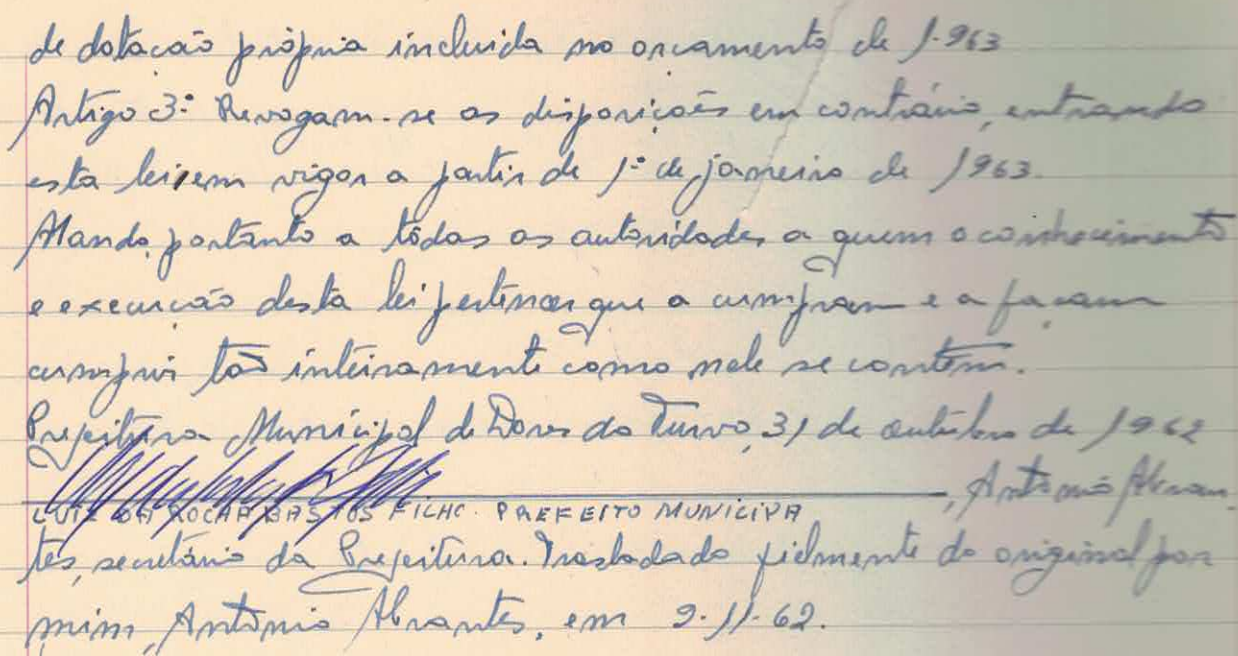 de dotação própria incluida no orcamento de 1.963
Artigo 3º Revogam-se as disposições em contrário, entrando
esta lei, em vigor a partir de 1º de janeiro de 1963.
Mando, portanto a tôdas as autoridades a quem o conhecimento
e execução desta lei pertencer que a cumpram e a façam
cumprir tão inteiramente como nele se contêm.
Prefeitura Municipal de Dores do Turvo, 31 de outubro de 1962
, Antônio Abran
LUIZ DA ROCHA BASTOS FILHO. PREFEITO MUNICIPA
tes, secretário da Prefeitura. Trasladado fielmente do original por
mim, Antônio Abrantes, em 9-11-62.